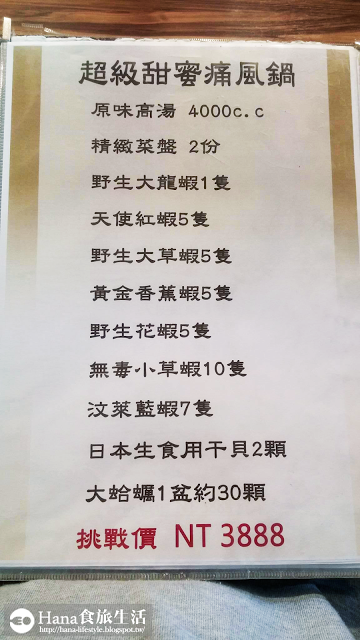 超級甜蜜痛風鍋
原味高湯 4000c.c
精緻菜盤 2份
野生大龍蝦1隻
天使紅蝦5隻
野生大草蝦5隻
黃金香蕉蝦5隻
野生花蝦5隻
無毒小草蝦10隻
汶萊藍蝦7隻
日本生食用干貝2顆
大蛤蠣1盆約30顆
挑戰價 NT 3888
Hana食旅生活
http://hana-lifestyle.blogspot.tw/